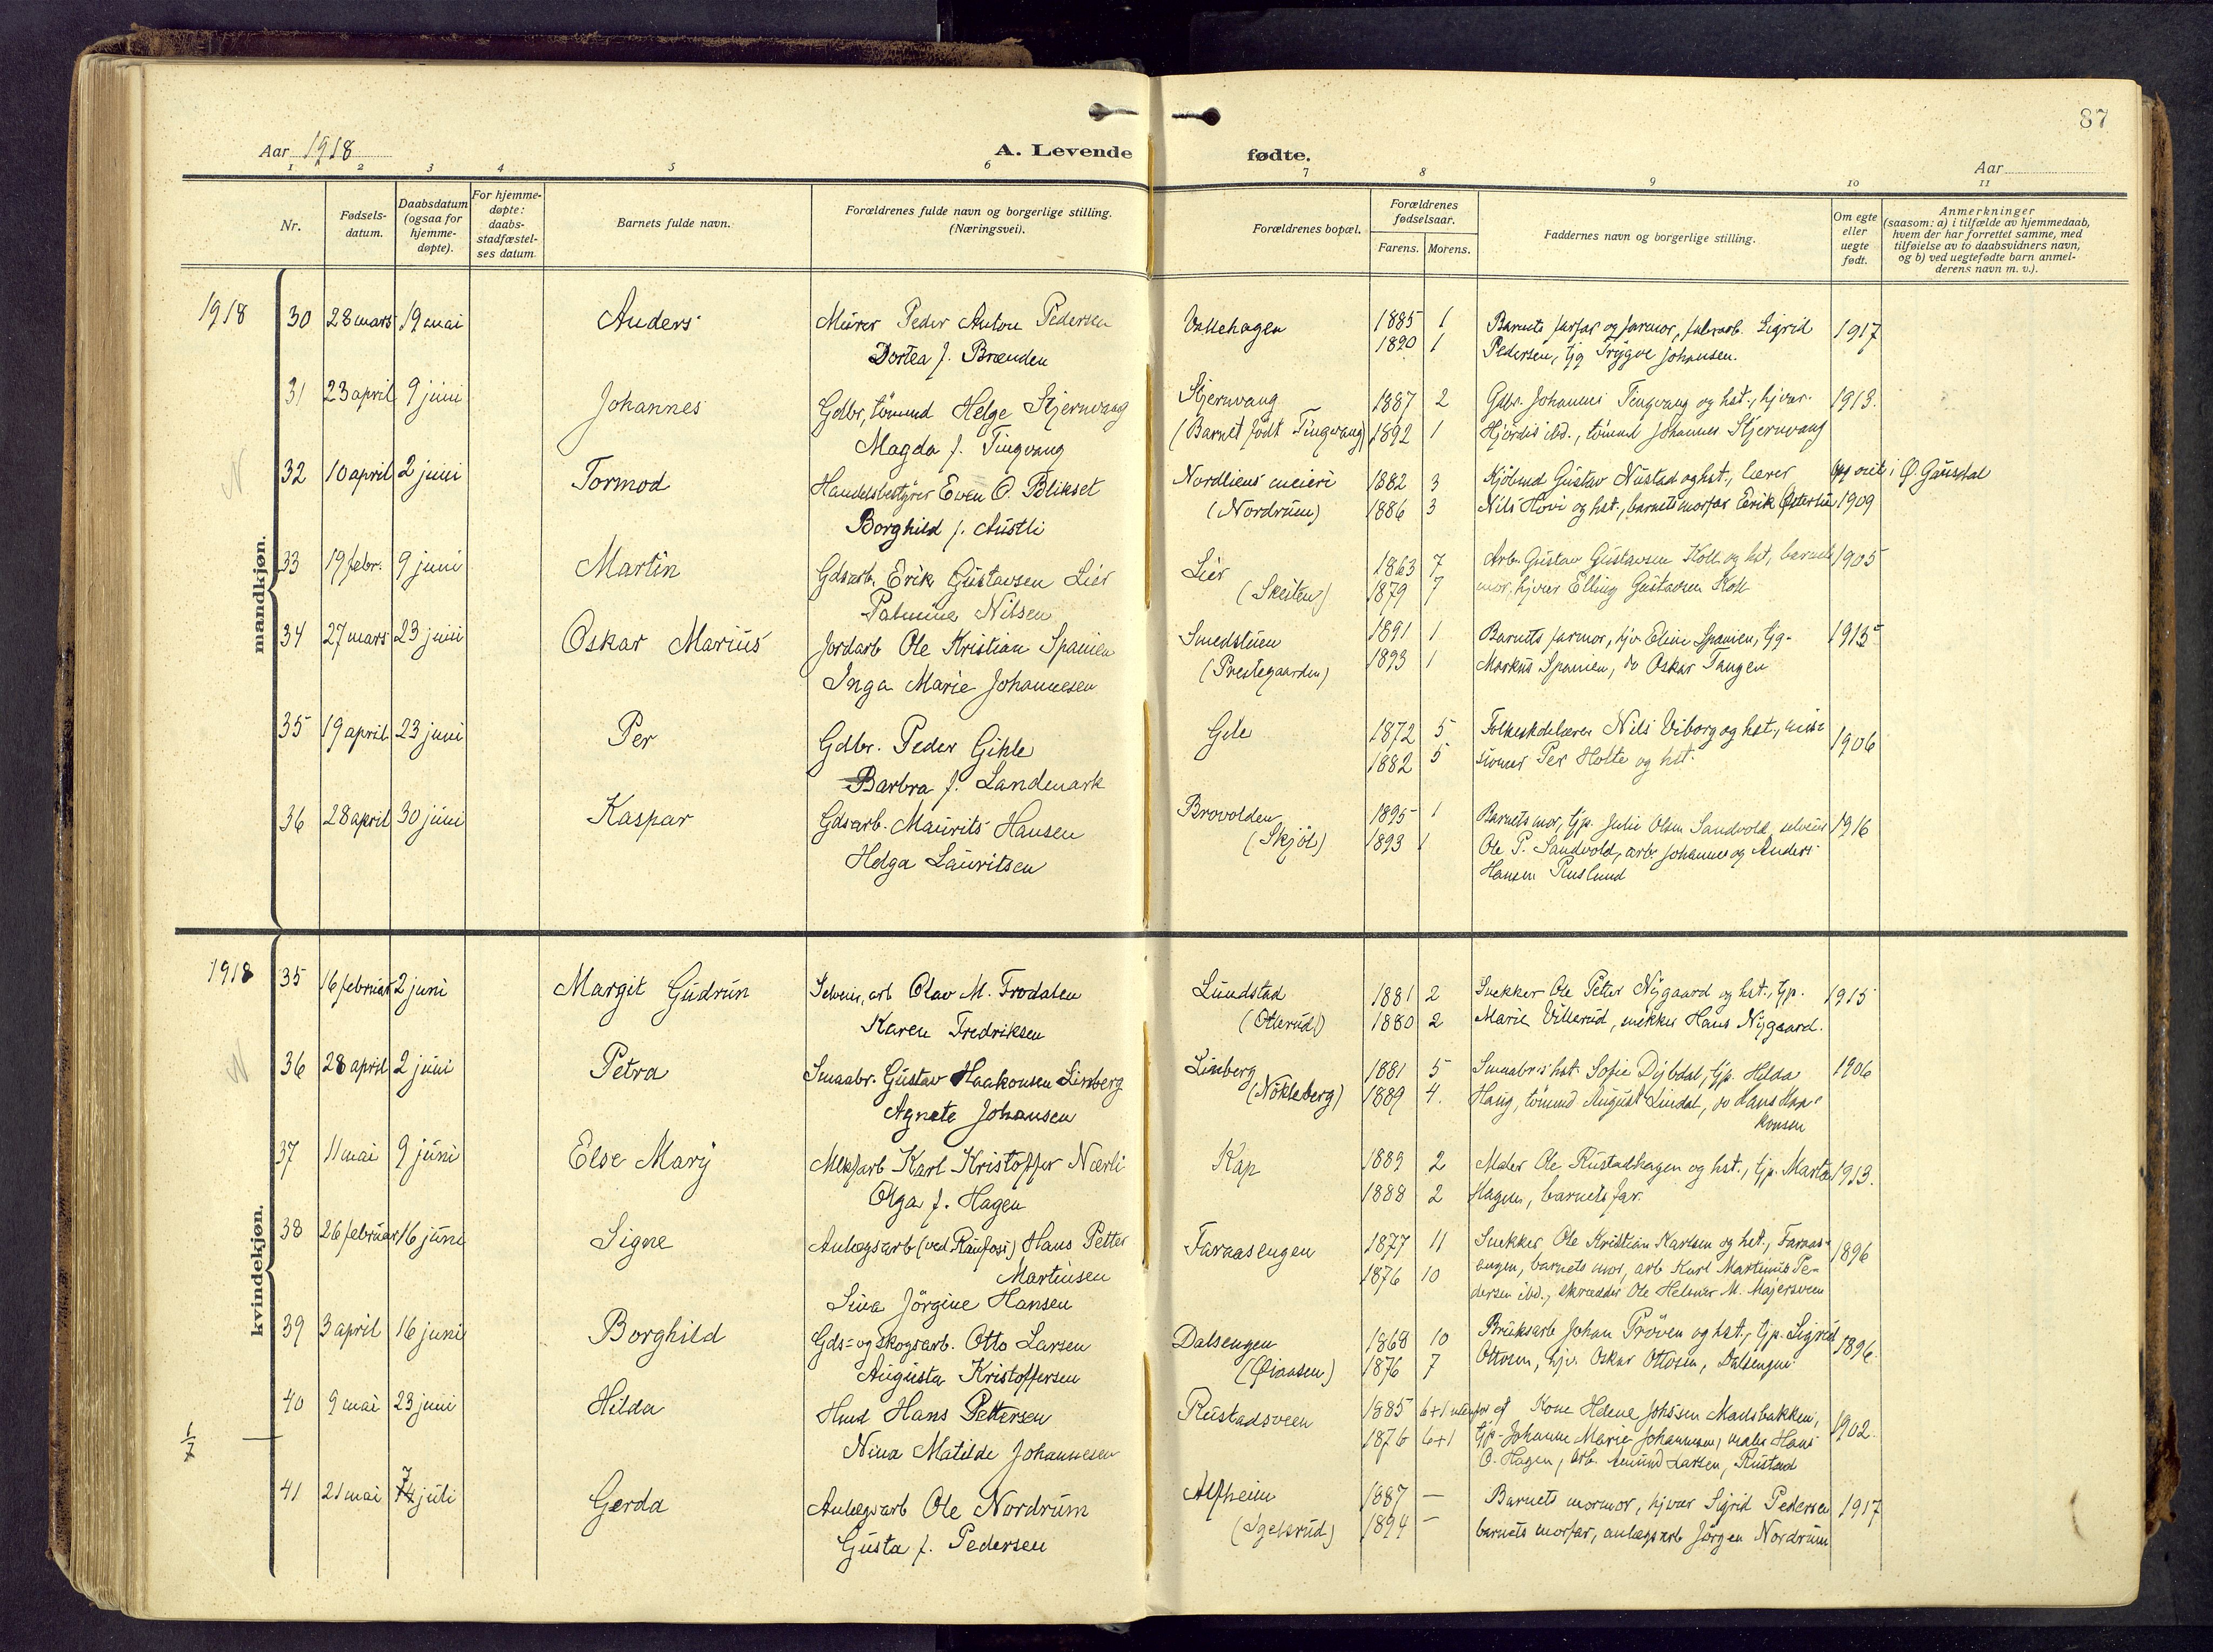 87
Aar 1918
A. Levende fødte.
Aar
1 2 3 4 5 6 7 8 9 10 11
Nr.
Fødsels-
datum.
Daabsdatum
(ogsaa for
hjemme-
døpte).
For hjemme-
døpte:
daabs-
stadfæstel-
ses datum
Barnets fulde navn.
Forældrenes fulde navn og borgerlige stilling.
(Næringsvei).
Forældrenes bopæl.
Forældrenes
fødselsaar.
Farens. Morens.
Faddernes navn og borgerlige stilling.
Om egte
eller
uegte
født.
Anmerkninger
(saasom: a) i tilfælde av hjemmedaab,
hvem der har forrettet samme, med
tilføielse av to daabsvidners navn,
og b) ved uegtefødte barn anmel-
derens navn m. v.).
mandkjøn.
1918 30 28 mars 19 mai Anders Murer Peder Anton Pedersen Vallehagen 1885 1 Barnets farfar og farmor, fabrarb. Sigrid 1917
Dortea f. Brænden 1890 1 Pedersen, Ug Trygve Johansen.
31 23 april 9 juni Johannes Gdbr, tömmd Helge Stjernvang Stjernvang 1887 2 Gdbr. Johannes Tingvang og hst., hjvær. 1913.
Magda f. Tingvang (Barnet födt Tingvang) 1892 1 Hjördis ibd., tömmd Johannes Stjernvang
N 32 10 april 2 juni Tormod Handelsbestyrer Even O. Blikset Nordliens meieri 1882 3 Kjöbmd Gustav Nustad og hst., lærer i Ø. Gausdal
Borghild f. Austli (Nordrum) 1886 3 Nils Hovi og hst., barnets morfar Erik Österlie 1909
33 19 febr. 9 juni Martin Gdsarb. Erik Gustavsen Lier Lier 1863 7 Arb. Gustav Gustavsen Koll og hst, barnets 1905
Palmine Nilsen (Skeiten) 1879 7 mor, hjvær Elling Gustavsen Koll
34 27 mars 23 juni Oskar Marius Jordarb Ole Kristian Spanien Smedstuen 1891 1 Barnets farmor, hjv Eline Spanien, Ug. 1915
Inga Marie Johannesen (Prestegaarden) 1893 1 Markus Spanien, do Oskar Tangen
35 19 april 23 juni Per Gdbr. Peder Gihle Gile 1872 5 Folkeskolelærer Nils Viborg og hst., mis- 1906
Barbra f. Landmark 1882 5 sionær Per Holte og hst.
36 28 april 30 juni Kaspar Gdsarb. Maurits Hansen Brovolden 1895 1 Barnets mor, Gp. Julie Olsen Sandvold, selveier 1916
Helga Lauritsen (Skjöl) 1893 1 Ole P. Sandvold, arb. Johannes og Anders
Hansen Ruslund
kvindekjøn.
1918 35 16 februar 2 juni Margit Gudrun Selveier, arb Olav M. Frodalen Lundstad 1881 2 Snekker Ole Petter Nygaard og hst., Gp. 1915
Karen Fredriksen (Otterud) 1880 2 Marie Villerud, snekker Hans Nygaard.
N 36 28 april 2 juni Petra Smaabr. Gustav Haakonsen Linberg Linberg 1881 5 Smaabr's hst. Sofie Dybdal, Gp. Hilda 1906
Agnete Johansen (Nökleberg) 1889 4. Haug, tömmd August Lindal, do Hans Haa-
konsen
37 11 mai 9 juni Else Mary Mekfarb Karl Kristoffer Nærli Kap 1889 2 Maler Ole Rustadhagen og hst., Gp. Marta 1913.
Olga f. Hagen 1888 2 Hagen, barnets far
38 26 februar 16 juni Signe Anlægsarb (ved Raufoss) Hans Petter Faraasengen 1877 11 Snekker Ole Kristian Karlsen og hst., Faraas- 1896
Martinsen 1876 10 engen, barnets mor, arb Karl Martinus Pe-
Sina Jörgine Hansen dersen ibd., skrædder Ole Helmer M. Majersveen
39 3 april 16 juni Borghild Gds- og skogsarb. Otto Larsen Dalsengen 1868 10 Bruksarb Johan Pröven og hst., Gp. Sigrid 1896.
Augusta Kristoffersen 1876 7 Ottosen, hjv. Oskar Ottosen, Dalsengen
40 9 mai 23 juni Hilda Hmd Hans Pettersen Rustadsveen 1885 6+1 Kone Helene Johnsen Maelsbakken, 1902.
1/7 Nina Matilde Johannesen 1876 6+1 Gp. Johanne Marie Johannesen, maler Hans
O. Hagen, arb. Amund Larsen, Rustad
41 21 mai 7 14 juli Gerda Anlægsarb Ole Nordrum Alfheim 1887 — Barnets mormor, hjvær Sigrid Pedersen 1917
Gusta f. Pedersen (Igelsrud) 1894 — barnets morfar, anlægsarb Jörgen Nordrum